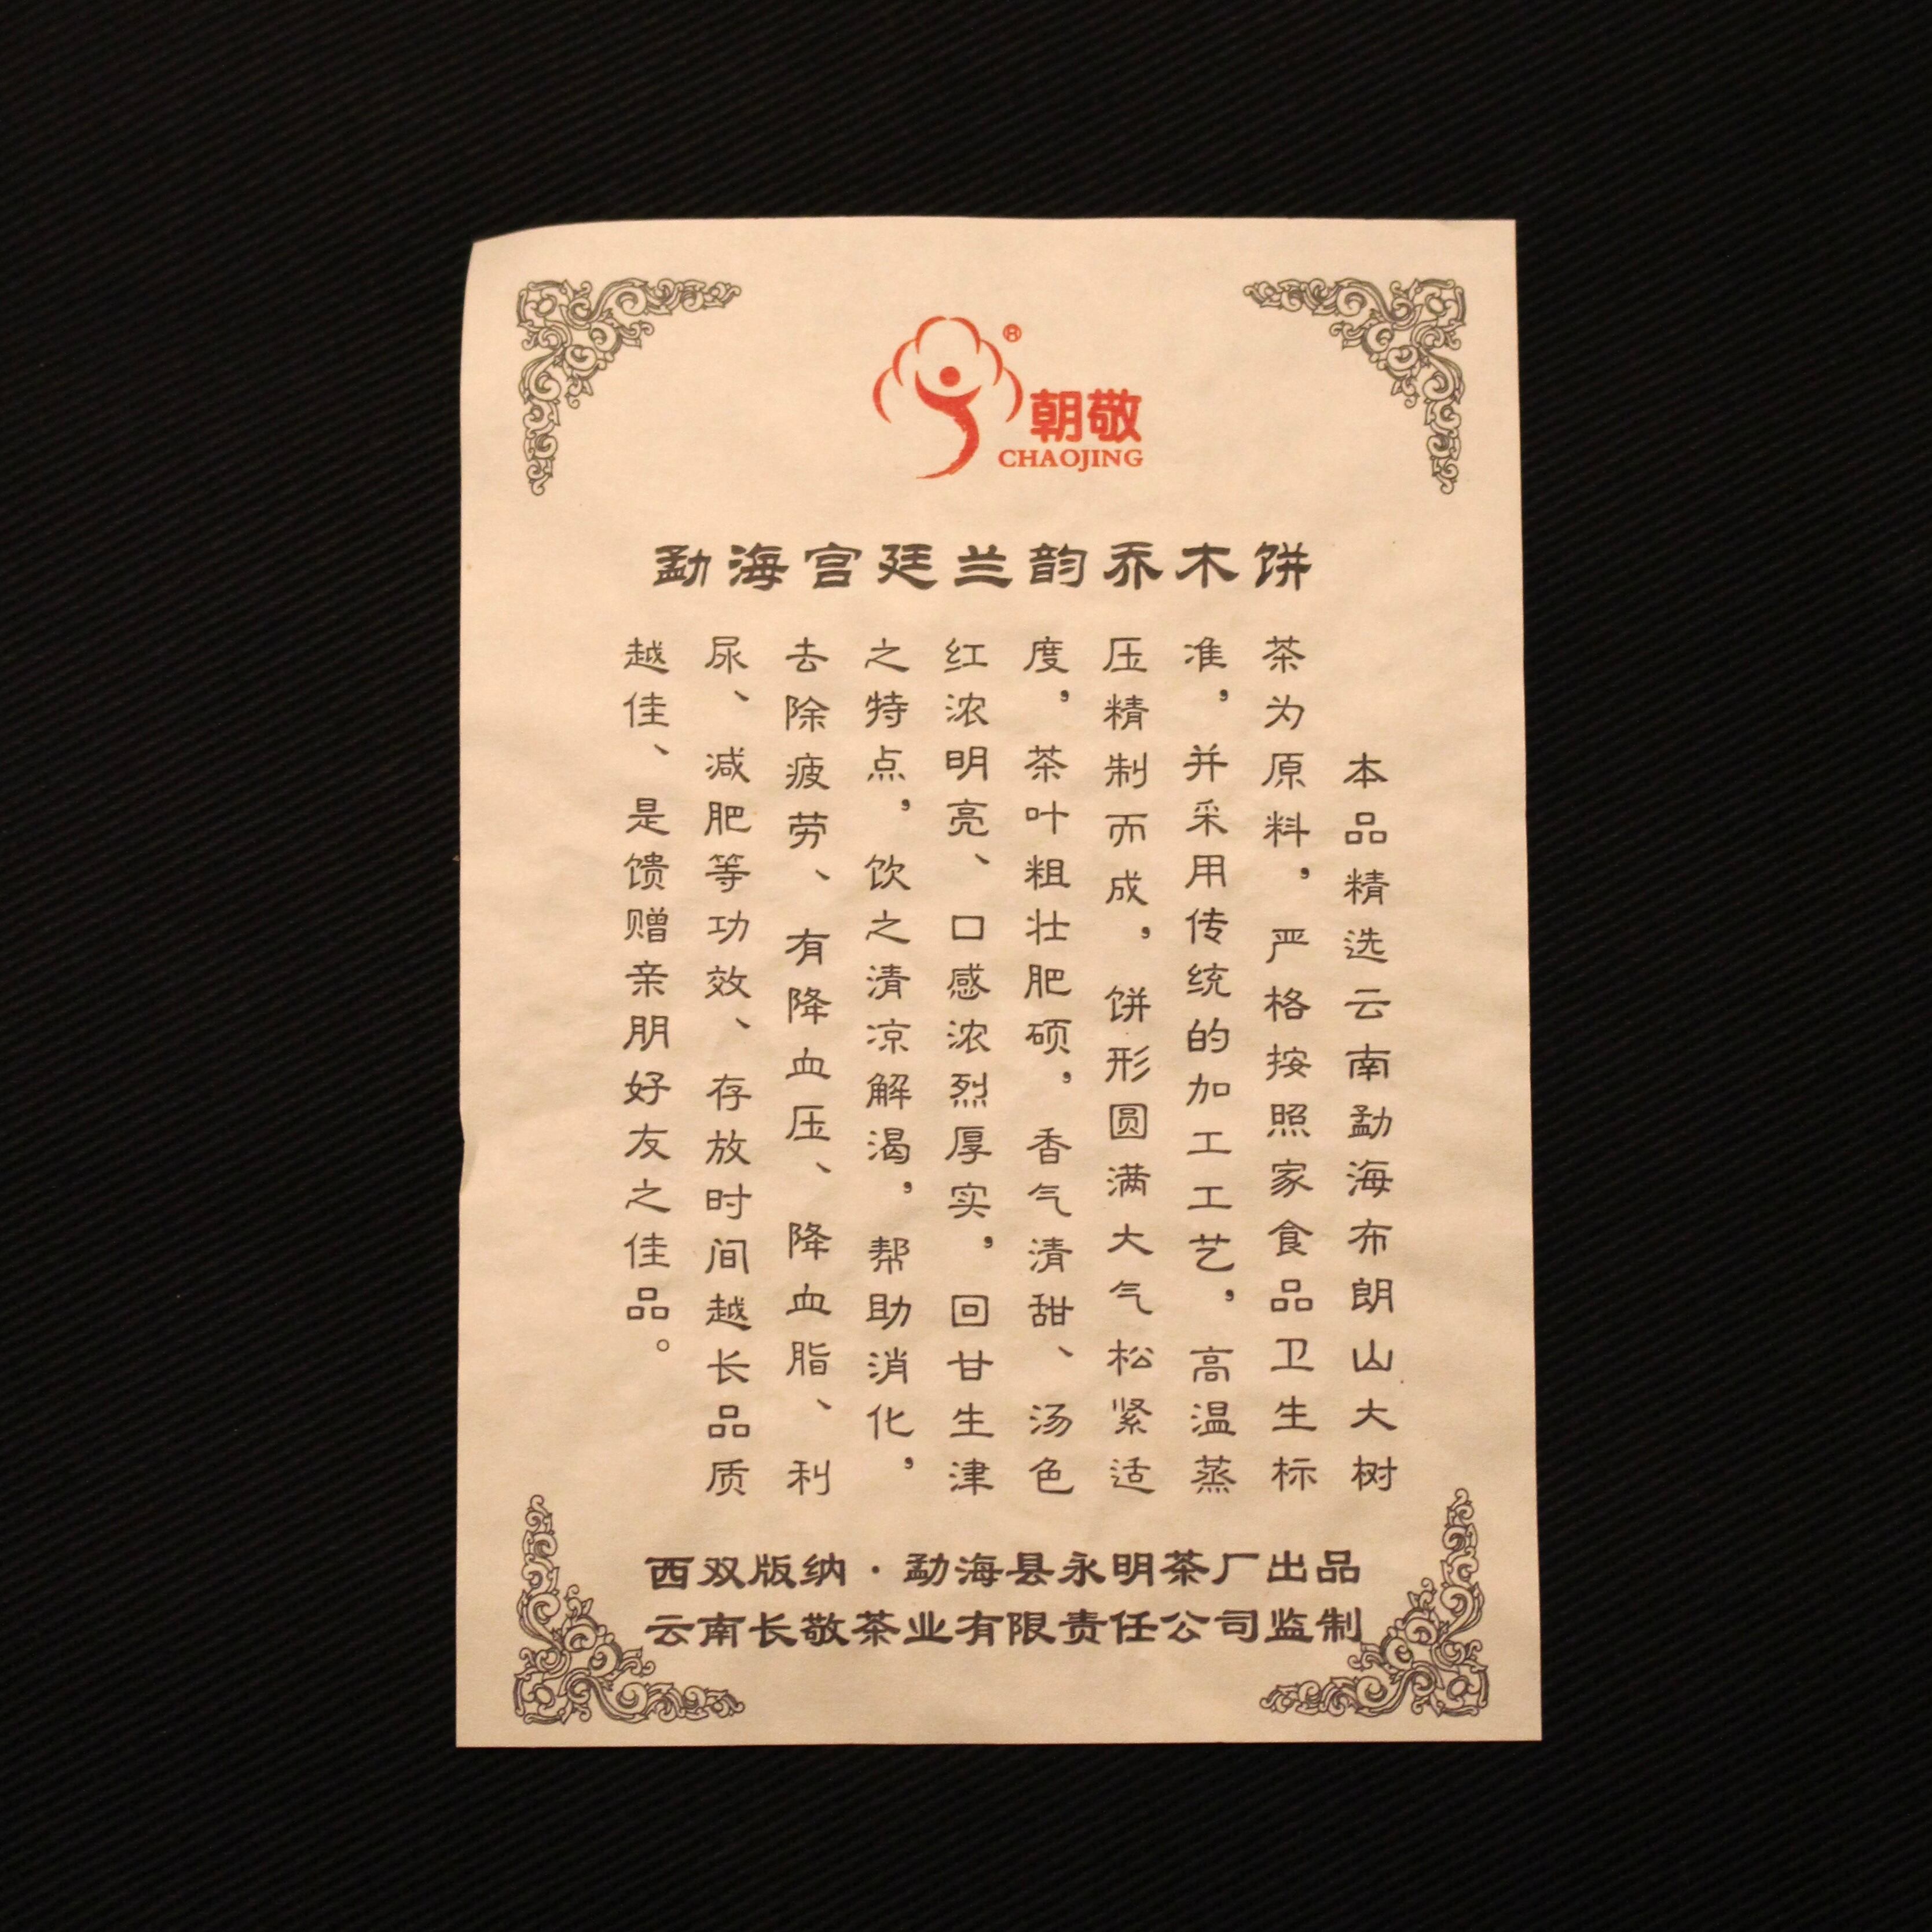 ®
朝敬
CHAOJING
勐海宫廷兰韵乔木饼
本品精选云南勐海布朗山大树
茶为原料，严格按照家食品卫生标
准，并采用传统的加工工艺，高温蒸
压精制而成，饼形圆满大气松紧适
度，茶叶粗壮肥硕，香气清甜、汤色
红浓明亮、口感浓烈厚实，回甘生津
之特点，饮之清凉解渴，帮助消化，
去除疲劳、有降血压、降血脂、利
尿、减肥等功效、存放时间越长品质
越佳、是馈赠亲朋好友之佳品。
西双版纳·勐海县永明茶厂出品
云南长敬茶业有限责任公司监制